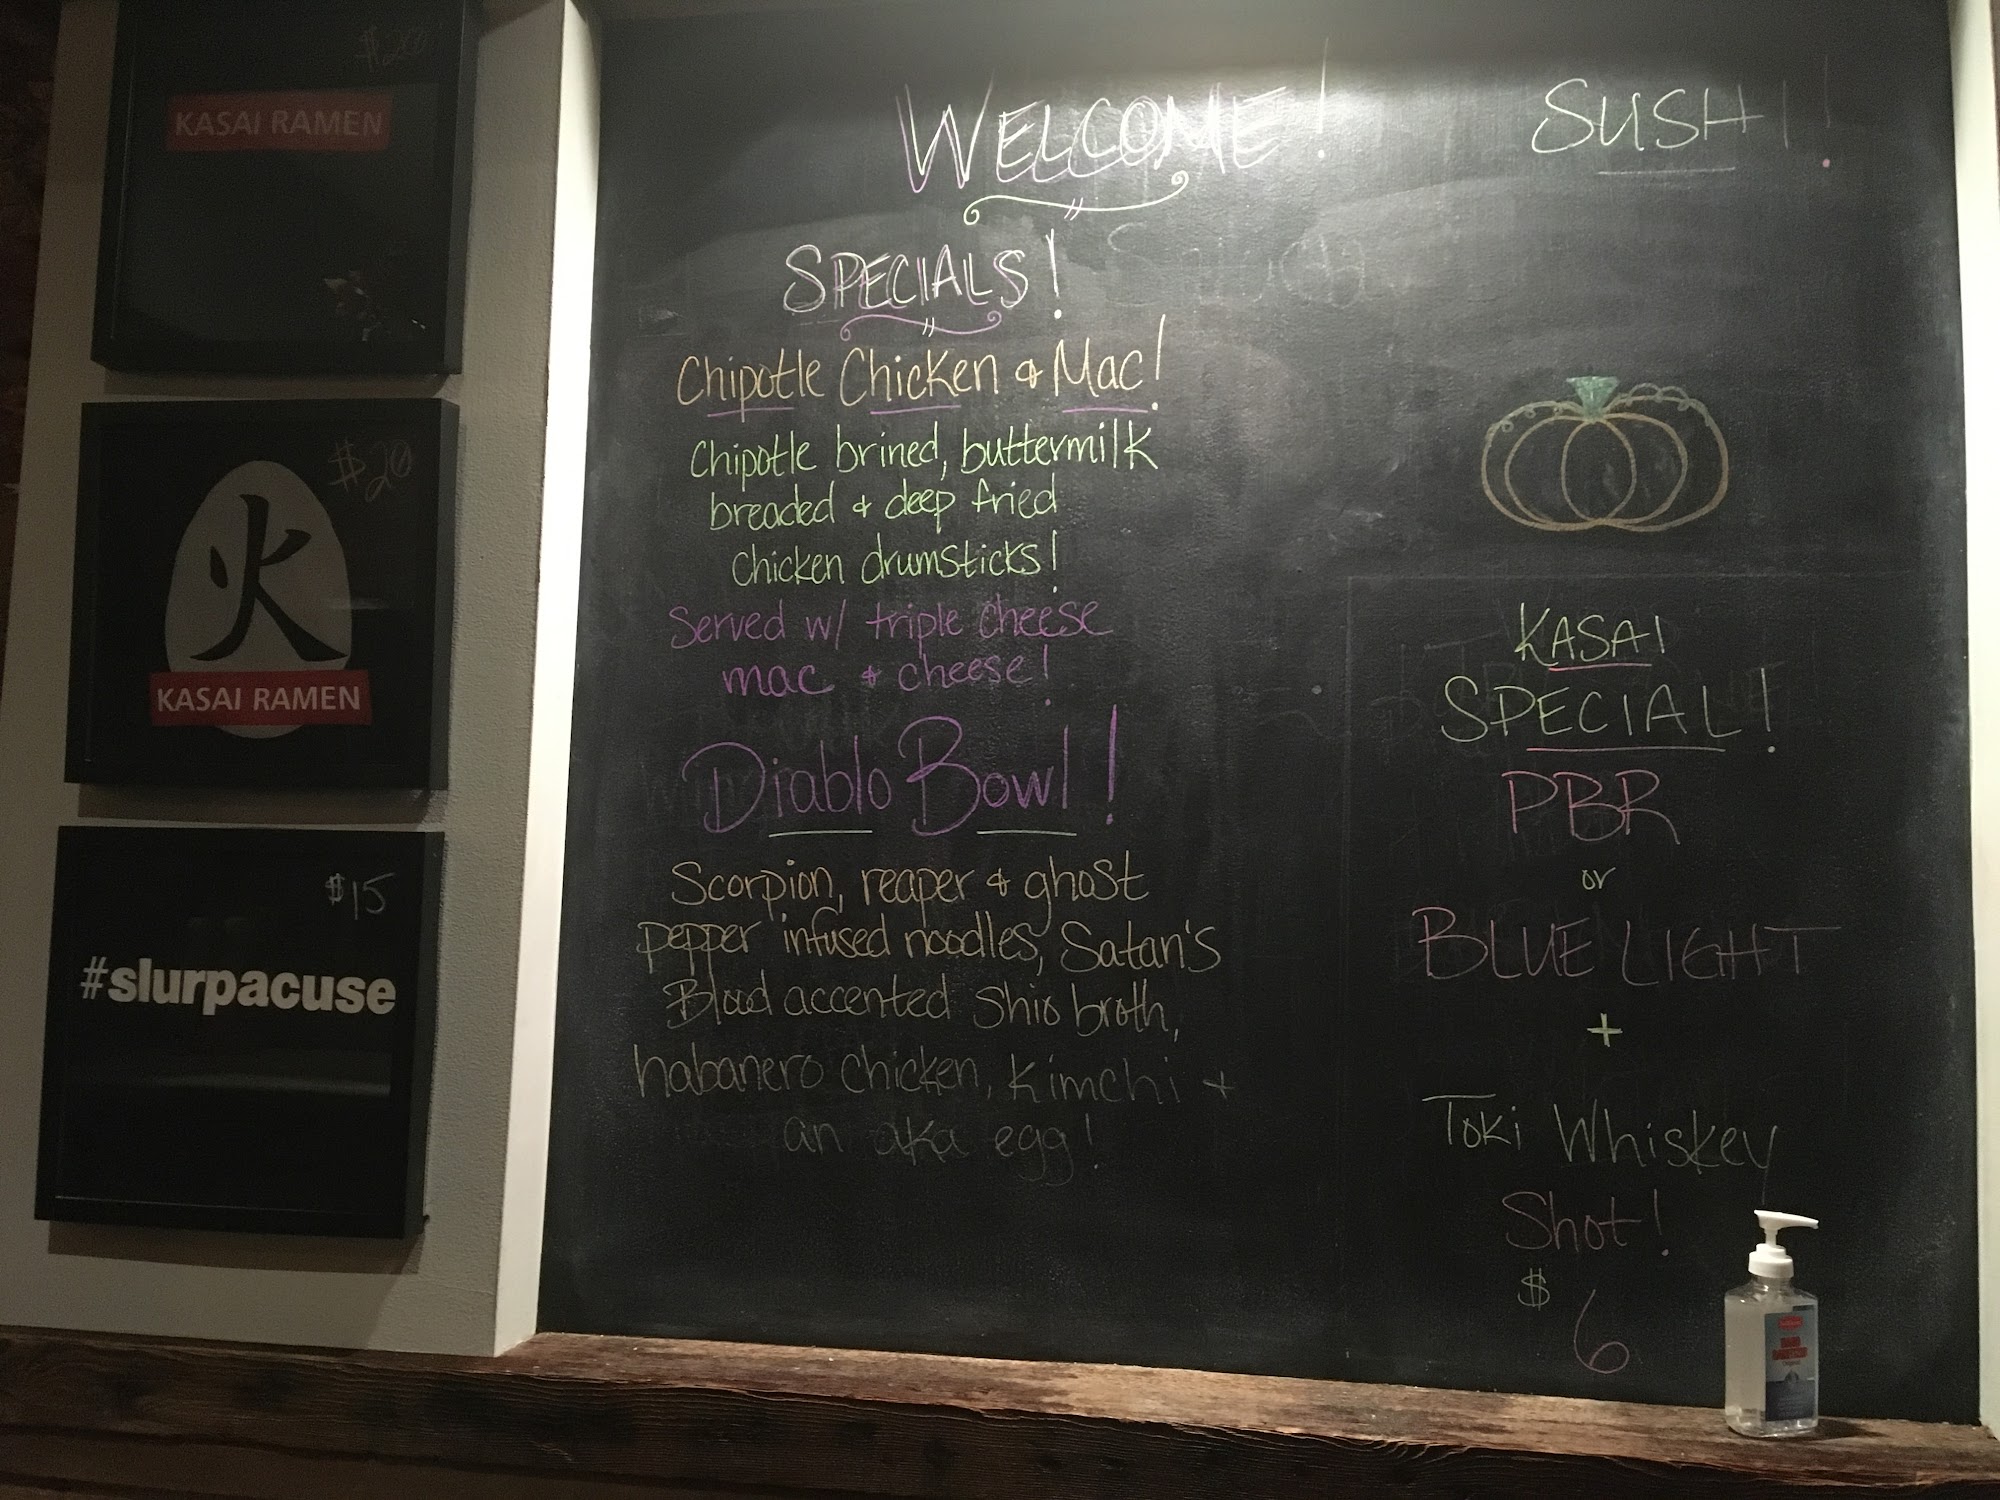 $20
KASAI RAMEN
$20
火
KASAI RAMEN
$15
#slurpacuse
WELCOME!
SPECIALS!
Chipotle Chicken & Mac!
Chipotle brined, buttermilk
breaded & deep fried
chicken drumsticks!
Served w/ triple cheese
mac & cheese!
Diablo Bowl!
Scorpion, reaper & ghost
pepper infused noodles, Satan's
Blood accented Shio broth,
habanero chicken, kimchi +
an aka egg!
SUSHI!
KASAI
SPECIAL!
PBR
or
BLUE LIGHT
+
Toki Whiskey
Shot!
$6